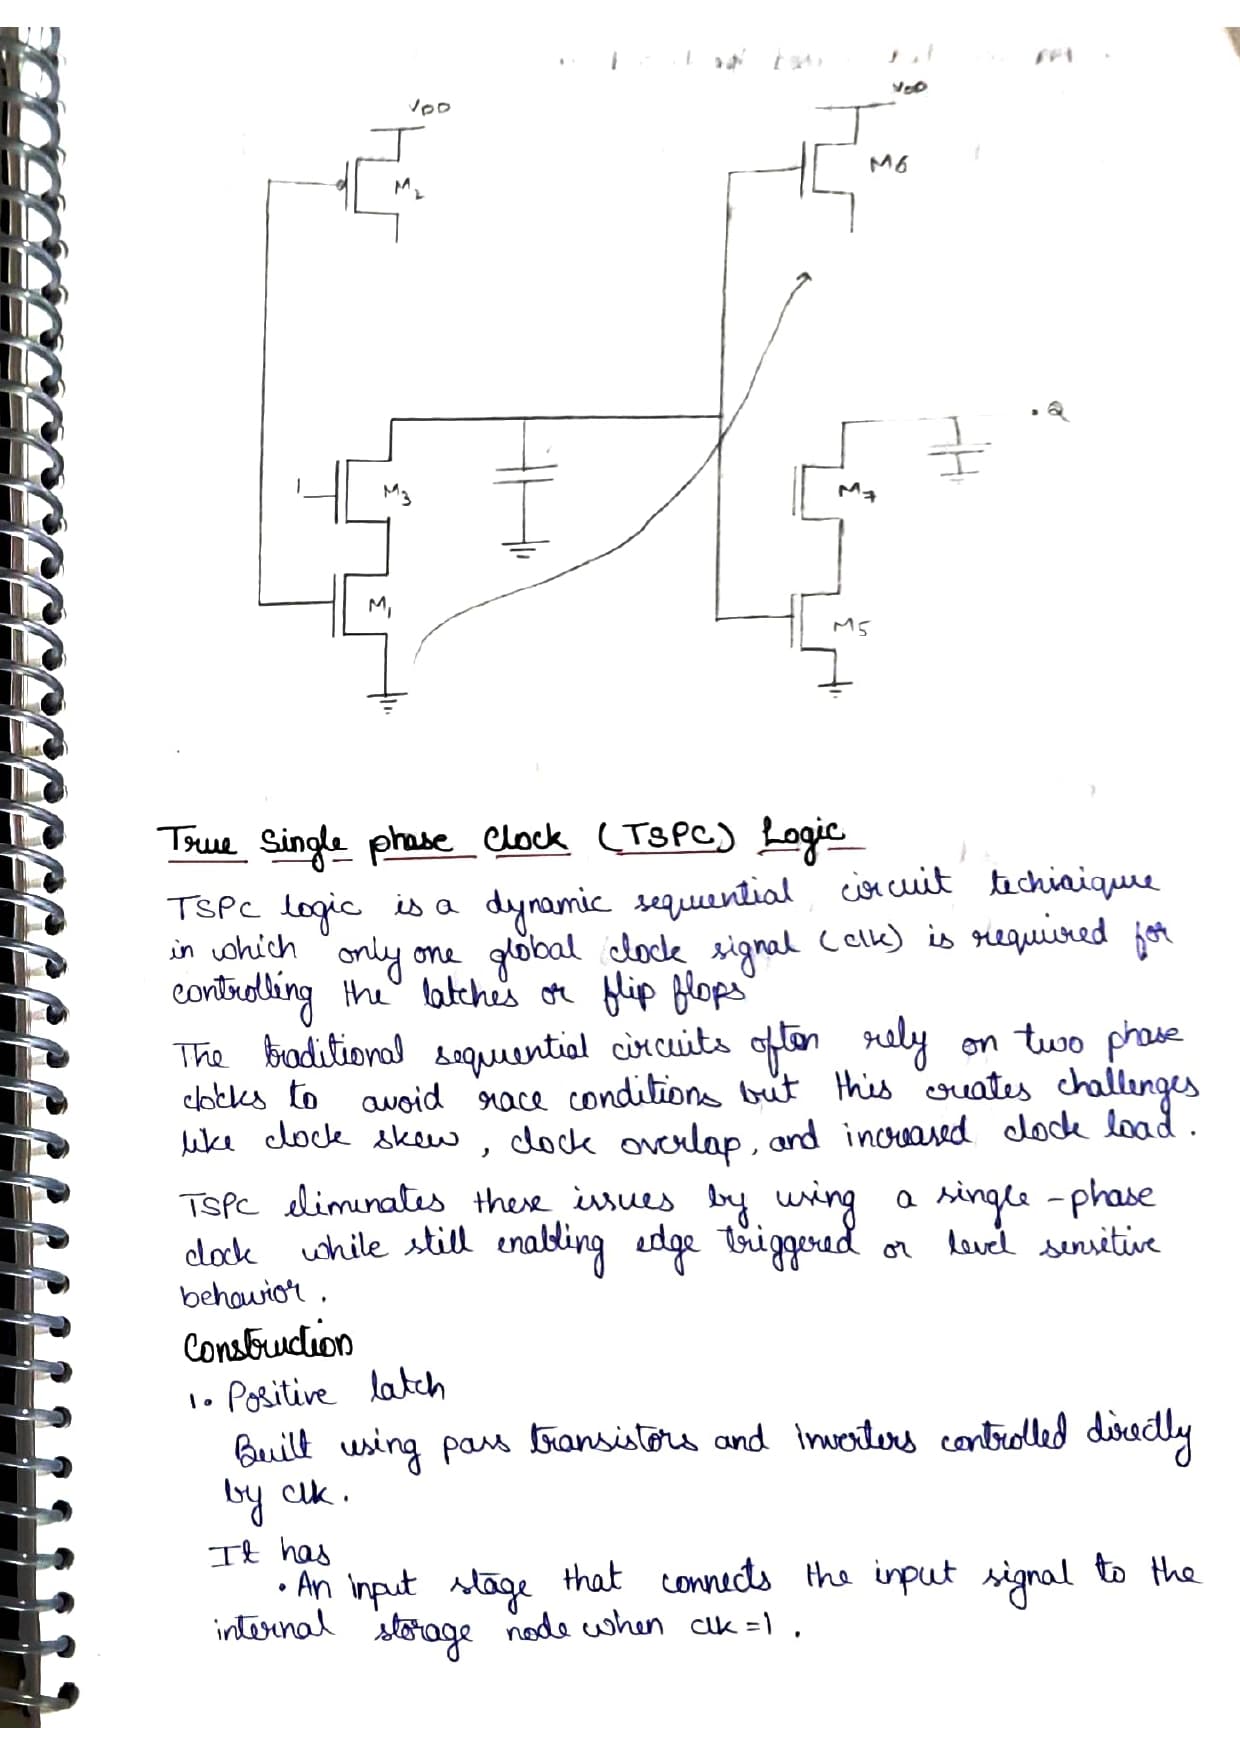 VDD
VDD
M2
M6
. Q
1
M3
M7
M1
M5
True Single phase Clock (TSPC) Logic
TSPC logic is a dynamic sequential circuit techinique
in which only one global clock signal (clk) is required for
controlling the latches or flip flops
The traditional sequential circuits often rely on two phase
clocks to avoid race conditions but this creates challenges
like clock skew, clock overlap, and increased clock load.
TSPC eliminates these issues by using a single-phase
clock while still enabling edge triggered or level sensitive
behavior.
Construction
1. Positive latch
Built using pass transistors and inverters controlled directly
by clk.
It has
• An input stage that connects the input signal to the
internal storage node when clk=1.